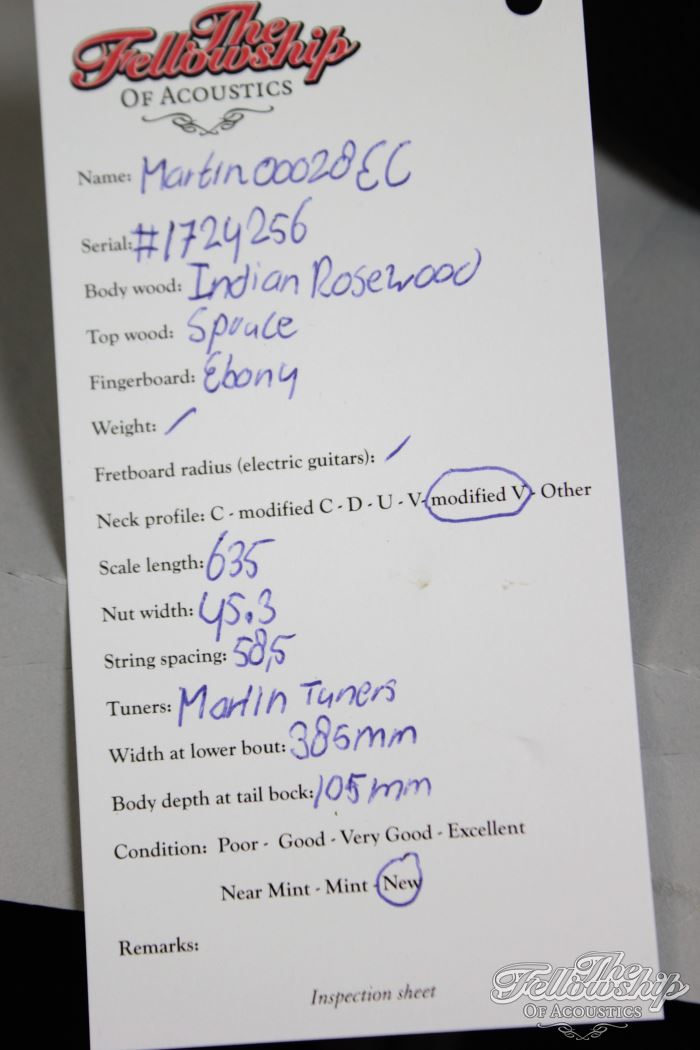 The
Fellowship
OF ACOUSTICS
Name: Martin 00028EC
Serial: #1724256
Body wood: Indian Rosewood
Top wood: Spruce
Fingerboard: Ebony
Weight: /
Fretboard radius (electric guitars): /
Neck profile: C - modified C - D - U - V- modified V - Other
Scale length: 635
Nut width: 45.3
String spacing: 58,5
Tuners: Martin Tuners
Width at lower bout: 385mm
Body depth at tail bock: 105mm
Condition: Poor - Good - Very Good - Excellent
Near Mint - Mint - New
Remarks:
Inspection sheet
The
Fellowship
OF ACOUSTICS